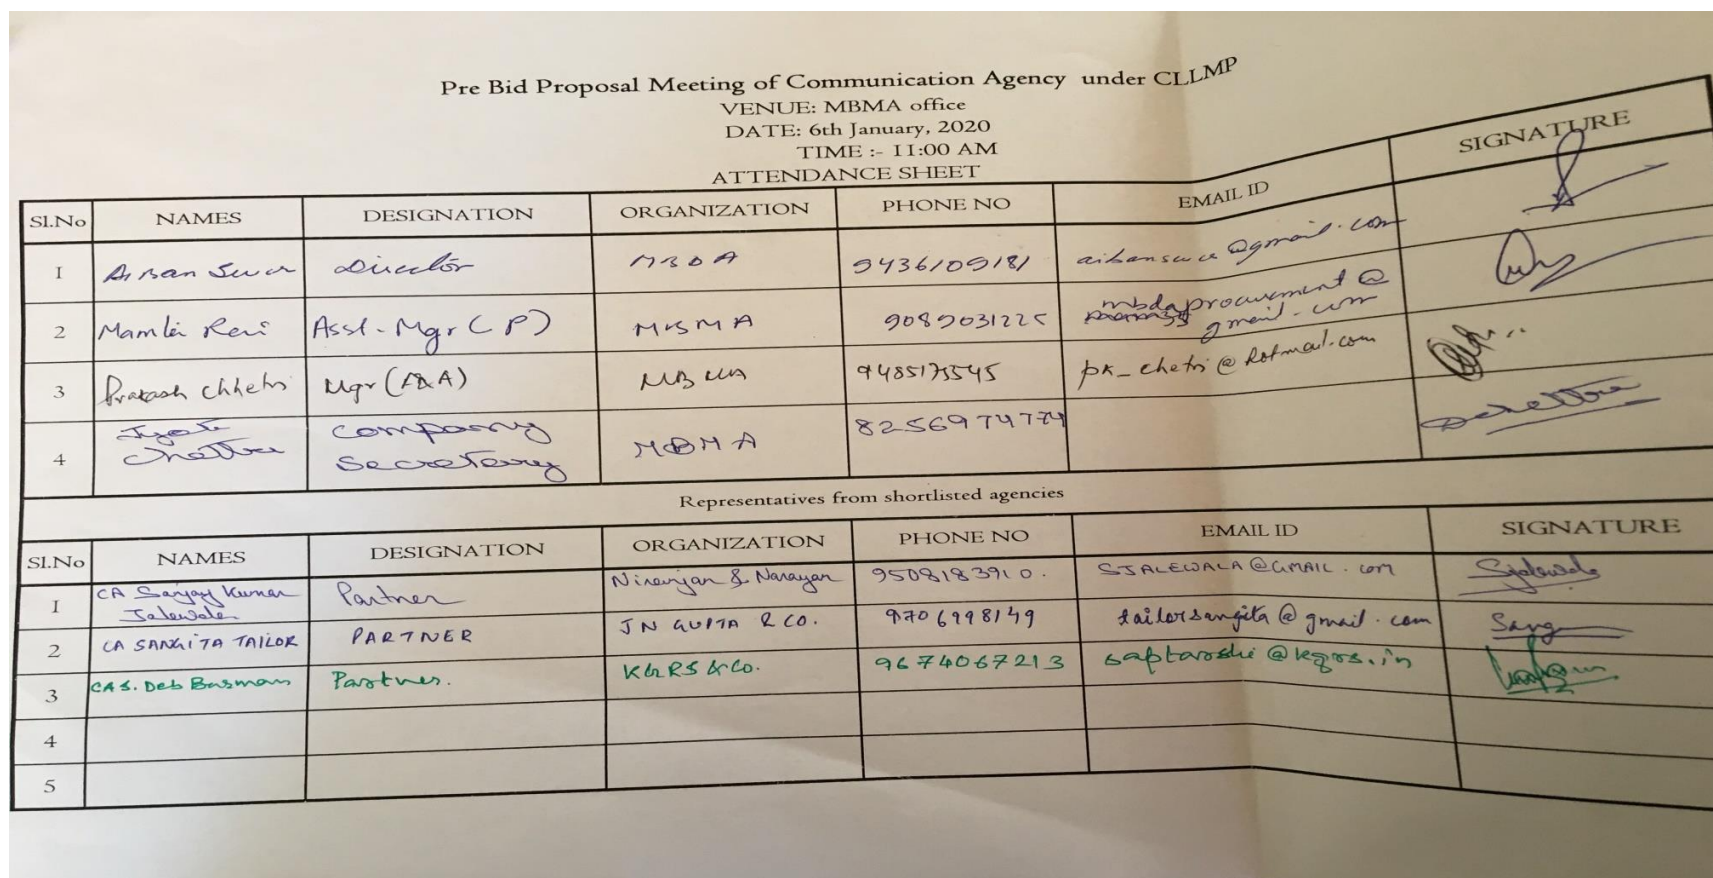 Pre Bid Proposal Meeting of Communication Agency under CLLMP
VENUE: MBMA office
DATE: 6th January, 2020
TIME :- 11:00 AM
ATTENDANCE SHEET
Sl.No NAMES DESIGNATION ORGANIZATION PHONE NO EMAIL ID SIGNATURE
1 Aiban Swer Director MBDA 9436109181 aibanswer@gmail.com
2 Asst. Mgr (P) MBMA 9089031225 mbdaprocurement@
gmail.com
3 Prakash Chhetri Mgr (A&A) MBMA 9485175545 pk_chetri@hotmail.com
4 Jyoti Company MBMA 8256974774
Chettri Secretary
Representatives from shortlisted agencies
Sl.No NAMES DESIGNATION ORGANIZATION PHONE NO EMAIL ID SIGNATURE
1 CA Sanjay Kumar Partner Niranjan & Narayan 9508183910. SJALEWALA@GMAIL.COM Sjalewala
Jalewala
2 CA SANGITA TAILOR PARTNER JN GUPTA & CO. 9706998149 tailorsangita@gmail.com Sang
3 CA S. Deb Barman Partner. KGRS & Co. 9674067213 saptarshi@kgrs.in
4
5